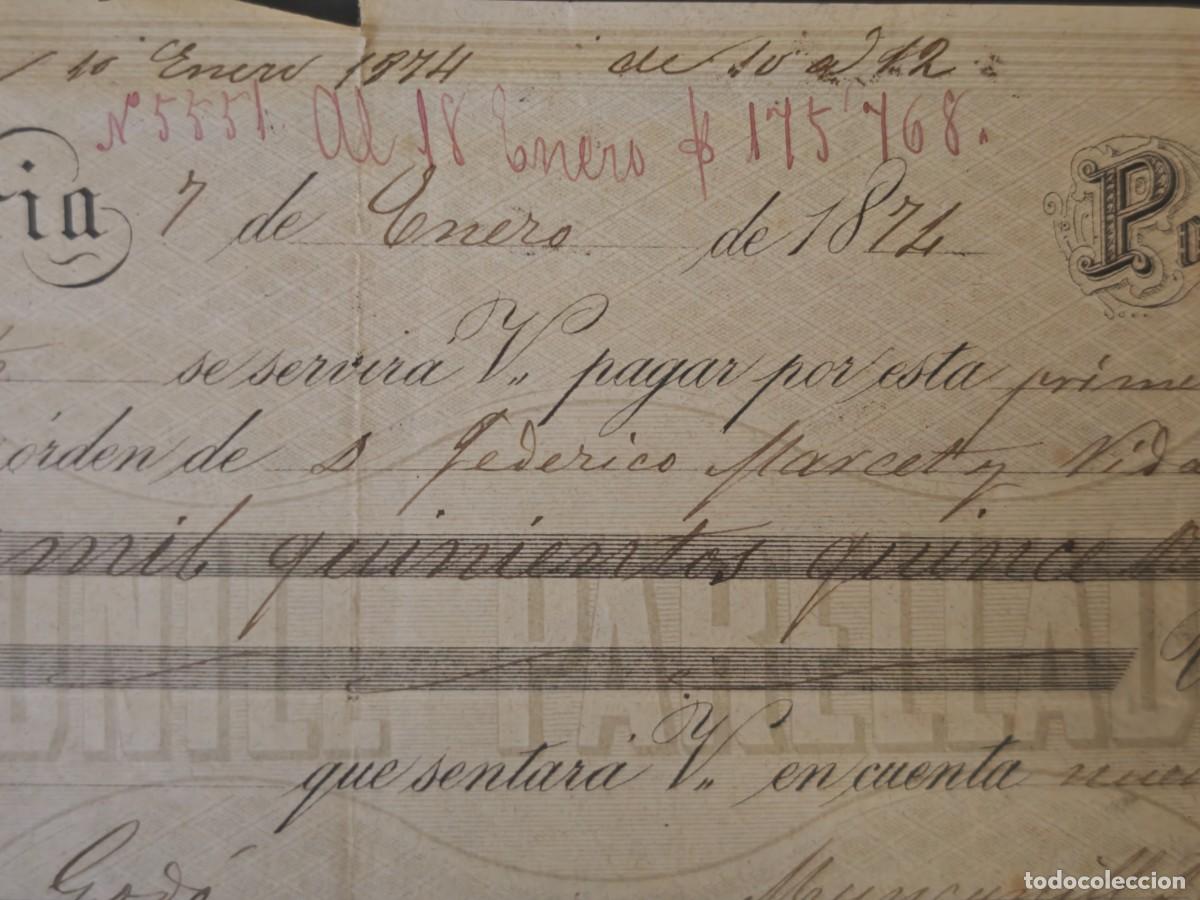 10 Enero 1874 de 10 a 12
Nº 5551. Al 18 Enero $ 175'768.
ria 7 de Enero de 1874 P
se servirá V. pagar por esta prime
órden de D Federico Marcet y Vida
mil quinientos quince
PARELLAD
que sentará V. en cuenta
Godó Muncunill
todocoleccion